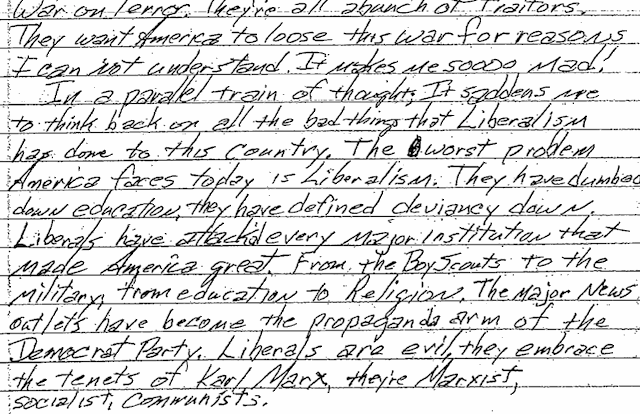 War on Terror. They're all abunch of Traitors.
They want America to loose this war for reasons
I can not understand. It makes me soooo mad!
In a parallel train of thought, It saddens me
to think back on all the bad things that Liberalism
has done to this country. The worst problem
America faces today is Liberalism. They have dumbed
down education, they have defined deviancy down.
Liberals have attack'd every major institution that
made America great. From the Boy Scouts to the
military, from education to Religion. The Major News
outlet's have become the propaganda arm of the
Democrat Party. Liberals are evil, they embrace
the tenets of Karl Marx, they're Marxist,
socialist, communists.